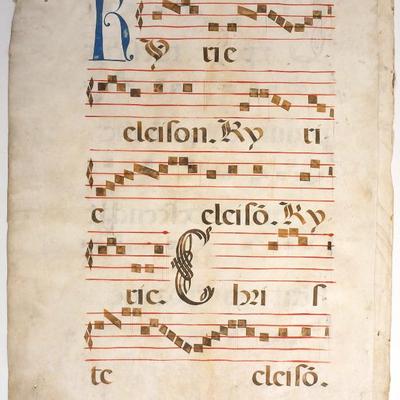 Ky rie
eleison. Ky ri
e eleisō. Ky
rie. Chri s
te eleisō.